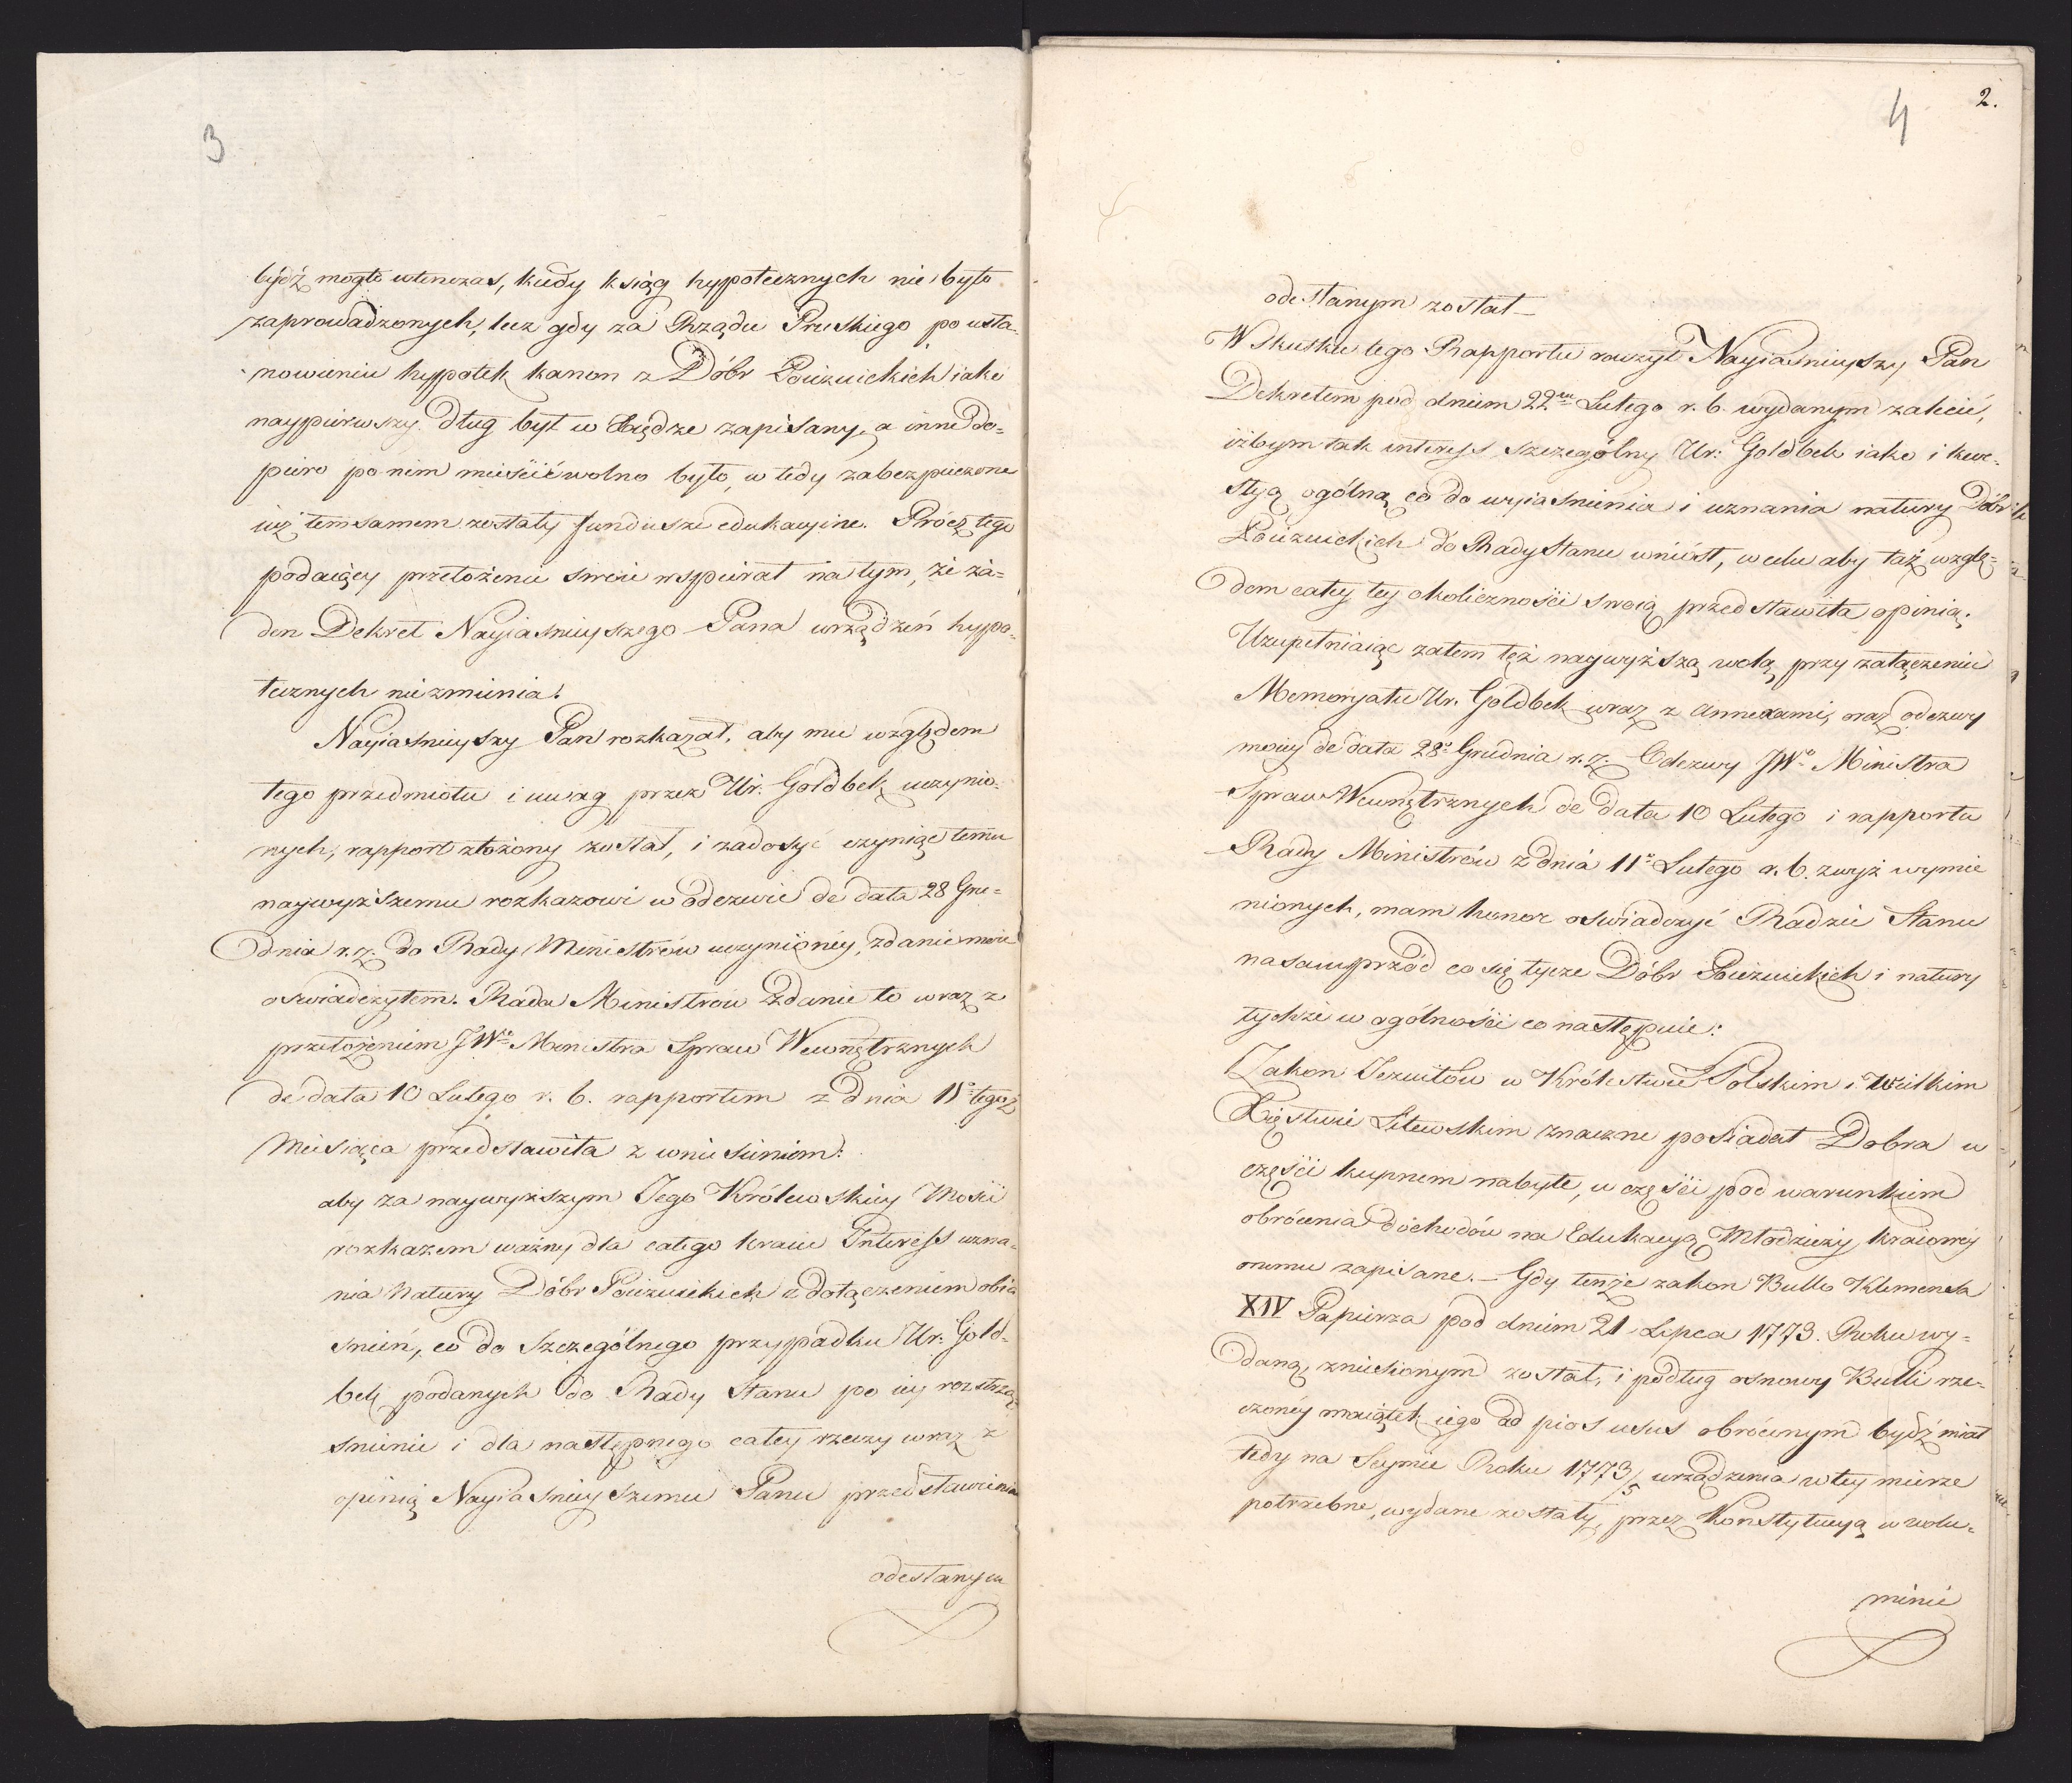 3
bydź mogło wtenczas, kiedy ksiąg hypotecznych nie było
zaprowadzonych, lecz gdy za Rządu Pruskiego po usta-
nowieniu hypotek kanon z Dóbr Poiezuickich iako
naypierwszy dług był w Xiędze zapisany, a inne do-
piero po nim mieścić wolno było, w tedy zabezpieczone
iuż temsamem zostały fundusze edukacyine. Prócz tego
podaiący przełożenie swoie wspierał na tym, że ża-
den Dekret Nayiaśnieyszego Pana urządzeń hypo-
tecznych nie zmienia.
Nayiaśnieyszy Pan rozkazał, aby mu względem
tego przedmiotu i uwag przez Ur. Goldbek uczynio-
nych, rapport złożony został, i zadosyć czyniąc temu
naywyższemu rozkazowi w odezwie de data 28 Gru-
dnia r. z. do Rady Ministrów uczynioney, zdanie moie
oświadczyłem. Rada Ministrów zdanie to wraz z
przełożeniem JWgo Ministra Spraw Wewnętrznych
de data 10 Lutego r. b. rapportem z dnia 11o tegoż
Miesiąca przedstawiła z wniesieniem:
aby za naywyższym Jego Królewskiey Mości
rozkazem ważny dla całego kraiu Interess uzna-
nia natury Dóbr Poiezuickich z dołączeniem obia
śnień, co do szczególnego przypadku Ur: Gold-
bek podanych do Rady Stanu po iey rozstrzą
śnienie i dla następnego całey rzeczy wraz z
opinią Nayiaśnieyszemu Panu przedstawienia
odesłanym
4
2.
odesłanym został —
W skutku tego Rapportu raczył Nayiaśnieyszy Pan
Dekretem pod dniem 22m Lutego r. b. wydanym zalecić,
iżbym tak interess szczególny Ur: Goldbek iako i kwe-
styą ogólną co do wyiaśnienia i uznania natury Dóbr
Poiezuickich do Rady Stanu wniósł, w celu aby taż wzglę-
dem całey tey okoliczności swoią przedstawiła opinią.
Uzupełniaiąc zatem tęż naywyższą wolą, przy załączeniu
Memoryału Ur. Goldbek wraz z annexami, oraz odezwy
moiey de data 28o Grudnia r. z. Odezwy JWo Ministra
Spraw Wewnętrznych de data 10 Lutego i rapportu
Rady Ministrów z dnia 11o Lutego r. b. zwyż wymie
nionych, mam honor oświadczyć Radzie Stanu
nasamprzód co się tycze Dóbr Poiezuickich i natury
tychże w ogólności co następuie:
Zakon Jezuitów w Królestwie Polskim i Wielkim
Xięstwie Litewskim znaczne posiadał Dobra w
części kupnem nabyte, w części pod warunkiem
obrócenia dochodów na Edukacyą Młodzieży kraiowéy
onemu zapisane. — Gdy tenże zakon Bullą Klemensa
XIV Papieża pod dniem 21 Lipca 1773. Roku wy-
daną, zniesionym został, i podług osnowy Bulli rze-
czonéy maiątek iego ad pios usus obróconym bydź miał
tedy na Seymie Roku 1773/5 urządzenia w tey mierze
potrzebne, wydane zostały, przez Konstytucyą w volu-
minie